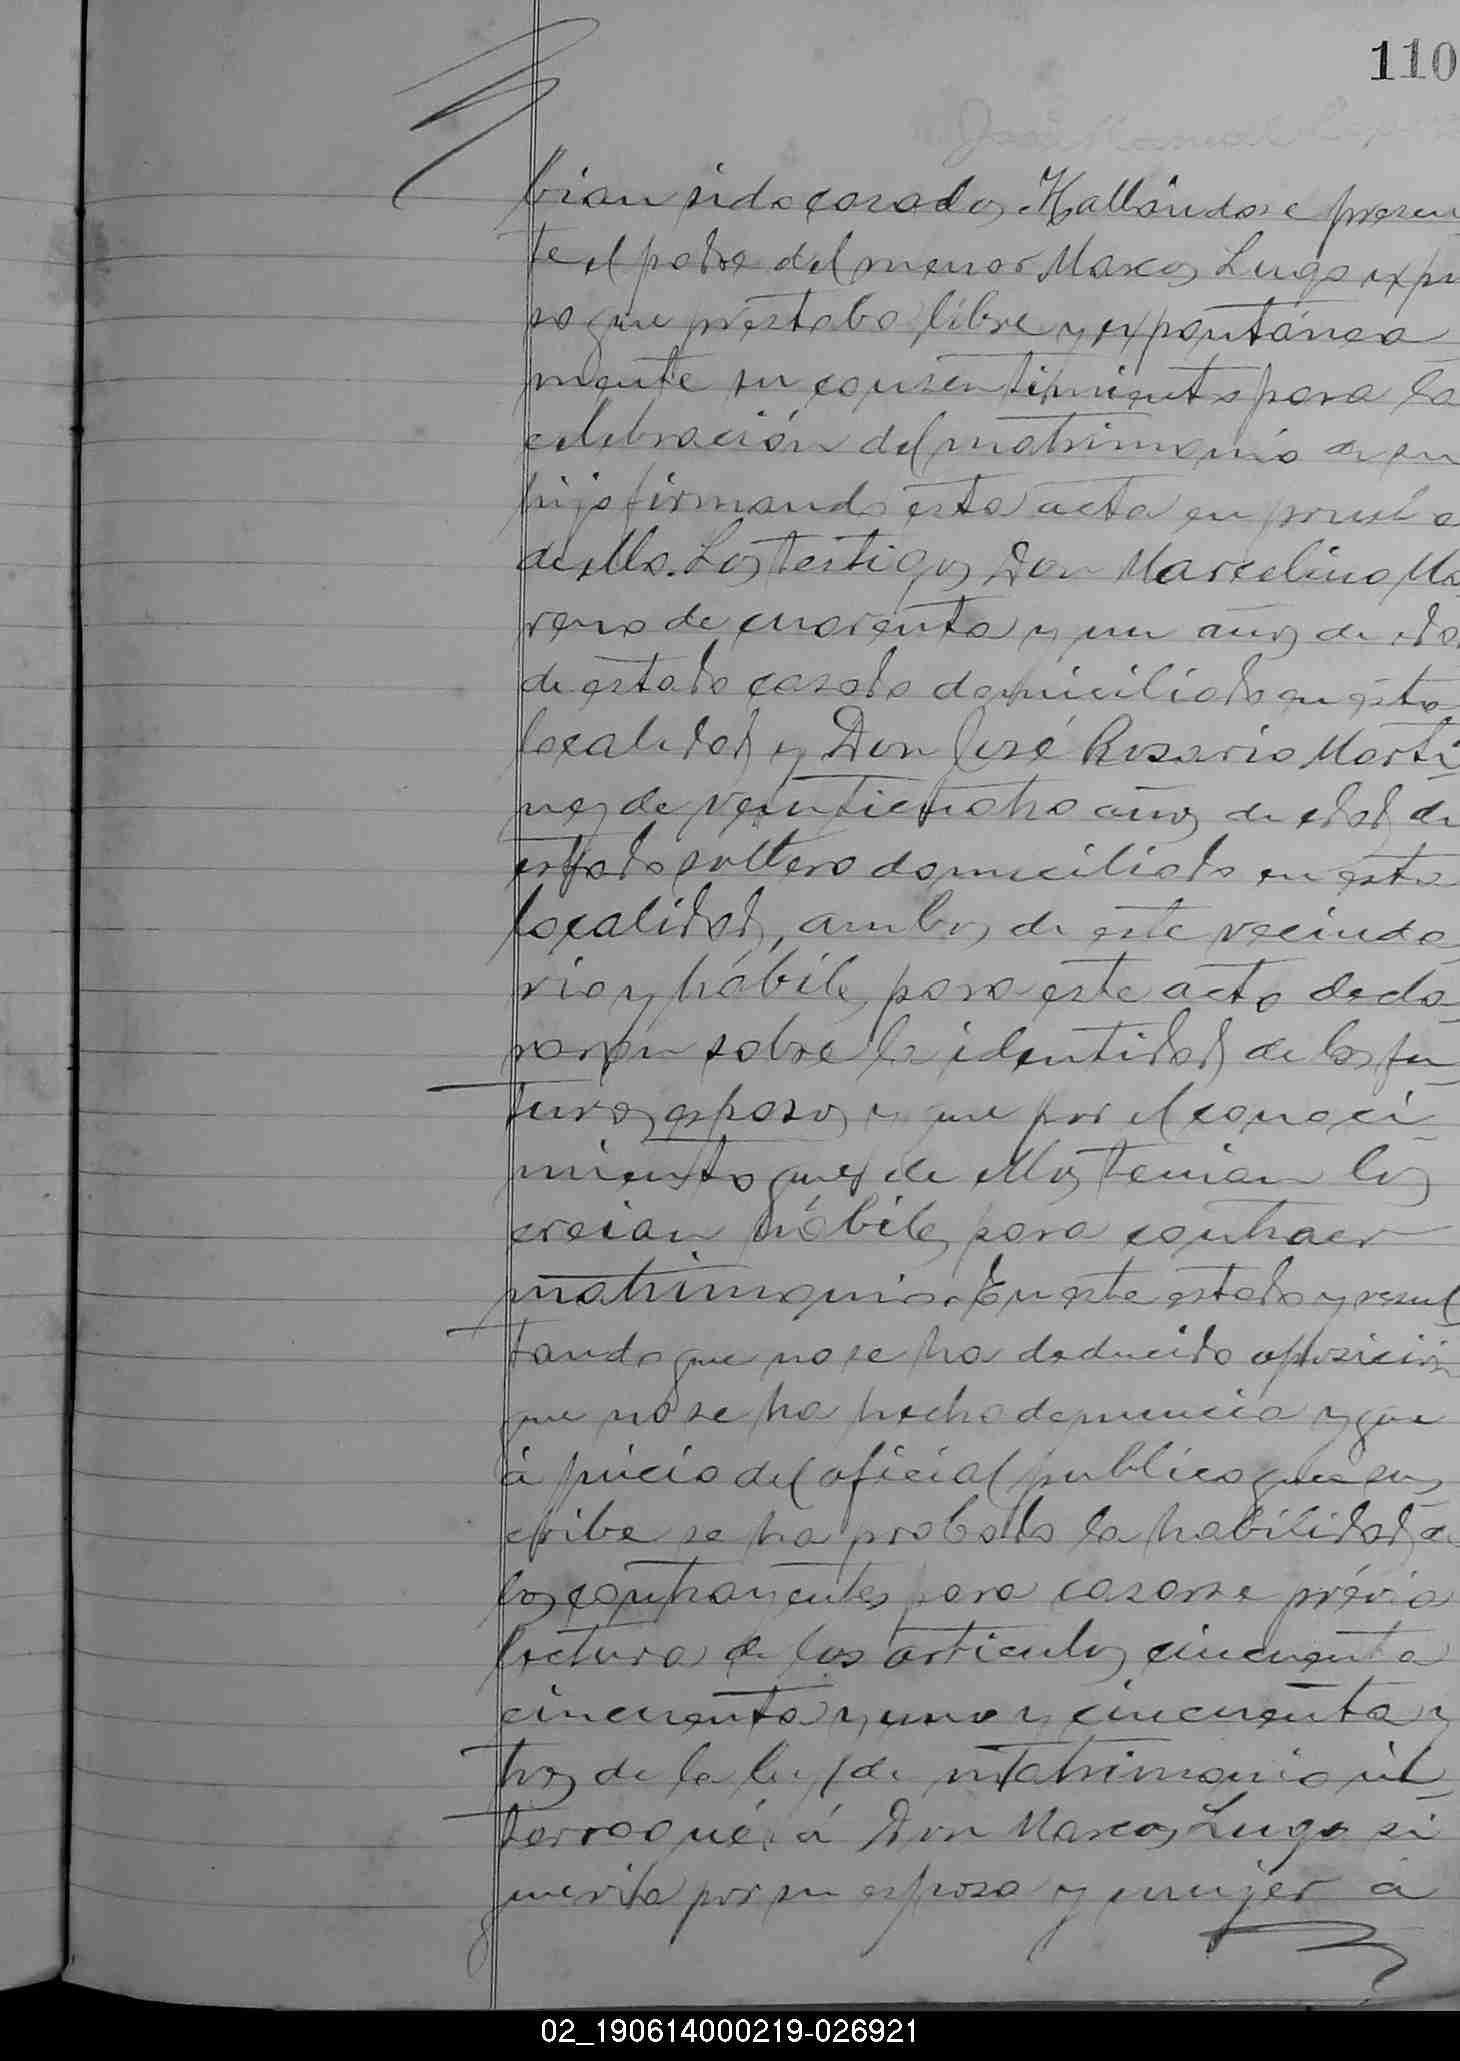 110
bian sido casados. Hallándose presen
te el padre del menor Marcos Lugo expu
so que prestaba libre y expontánea
mente su consentimiento para la
celebración del matrimonio de su
hijo firmando esta acta en prueba
de ello. Los testigos Don Marcelino Mo
reno de cuarenta y un años de edad
de estado casado domiciliado en esta
localidad y Don José Rosario Marti
nez de veinticuatro años de edad de
estado soltero domiciliado en esta
localidad, ambos de este vecinda
rio y hábiles para este acto decla
raron sobre la identidad de los fu
turos esposos y que por el conoci
miento que de ellos tenian los
creian hábiles para contraer
matrimonio. En este estado y resul
tando que no se ha deducido oposición
que no se ha hecho denuncia y que
á juicio del oficial publico que sus
cribe se ha probado la habilidad de
los contrayentes para casarse prévia
lectura de los articulos cincuenta
cincuenta y uno y cincuenta y
tres de la ley de matrimonio in
terrogué á Don Marcos Lugo si
queria por su esposa y mujer á
02_190614000219-026921